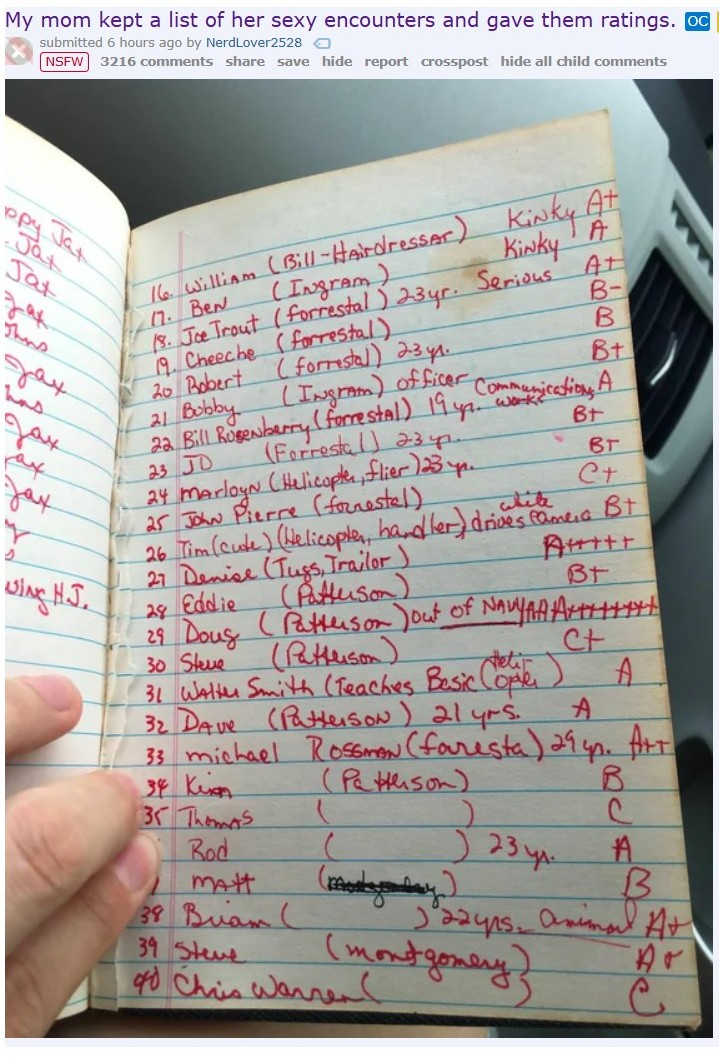 My mom kept a list of her sexy encounters and gave them ratings. OC
submitted 6 hours ago by NerdLover2528
NSFW 3216 comments share save hide report crosspost hide all child comments
ppy Jax
Jax
Jax
Jax
Jax
Jax
ax
Jax
wing H.J.
16. William (Bill-Hairdressar) Kinky A+
17. Ben (Ingram) Kinky A
18. Joe Trout (forrestal) 23 yr. Serious A+
19. Cheeche (forrestal) B-
20 Robert (forrestal) 23 yr. B
21 Bobby (Ingram) officer B+
22 Bill Rosenberry (forrestal) 19 yr. Communications works A
23 JD (Forrestal) 23 yr. B+
24 Marloyn (Helicopter, flier) 23 yr. B+
25 John Pierre (forrestal) C+
26 Tim (cute) (Helicopter, handler) drives white Camera B+
27 Denise (Tugs, Trailor) A+++++
28 Eddie (Patterson) B+
29 Doug (Patterson) out of NAVY/AA A++++++++
30 Steve (Patterson) C+
31 Walter Smith (Teaches Basic Helicopter) A
32 Dave (Patterson) 21 yrs. A
33 michael Rossman (foresta) 29 yr. A++
34 (Patterson) B
35 Thomas ( ) C
Rod ( ) 23 yr. A
matt (montgomery) B
38 Brian ( ) 22 yrs. animal A+
39 Steve (montgomery) A+
40 Chris Warren ( ) C